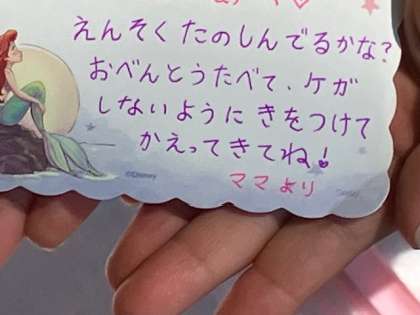 えんそくたのしんでるかな?
おべんとうたべて、ケガ
しないようにきをつけて
かえってきてね!
ママより
©Disney